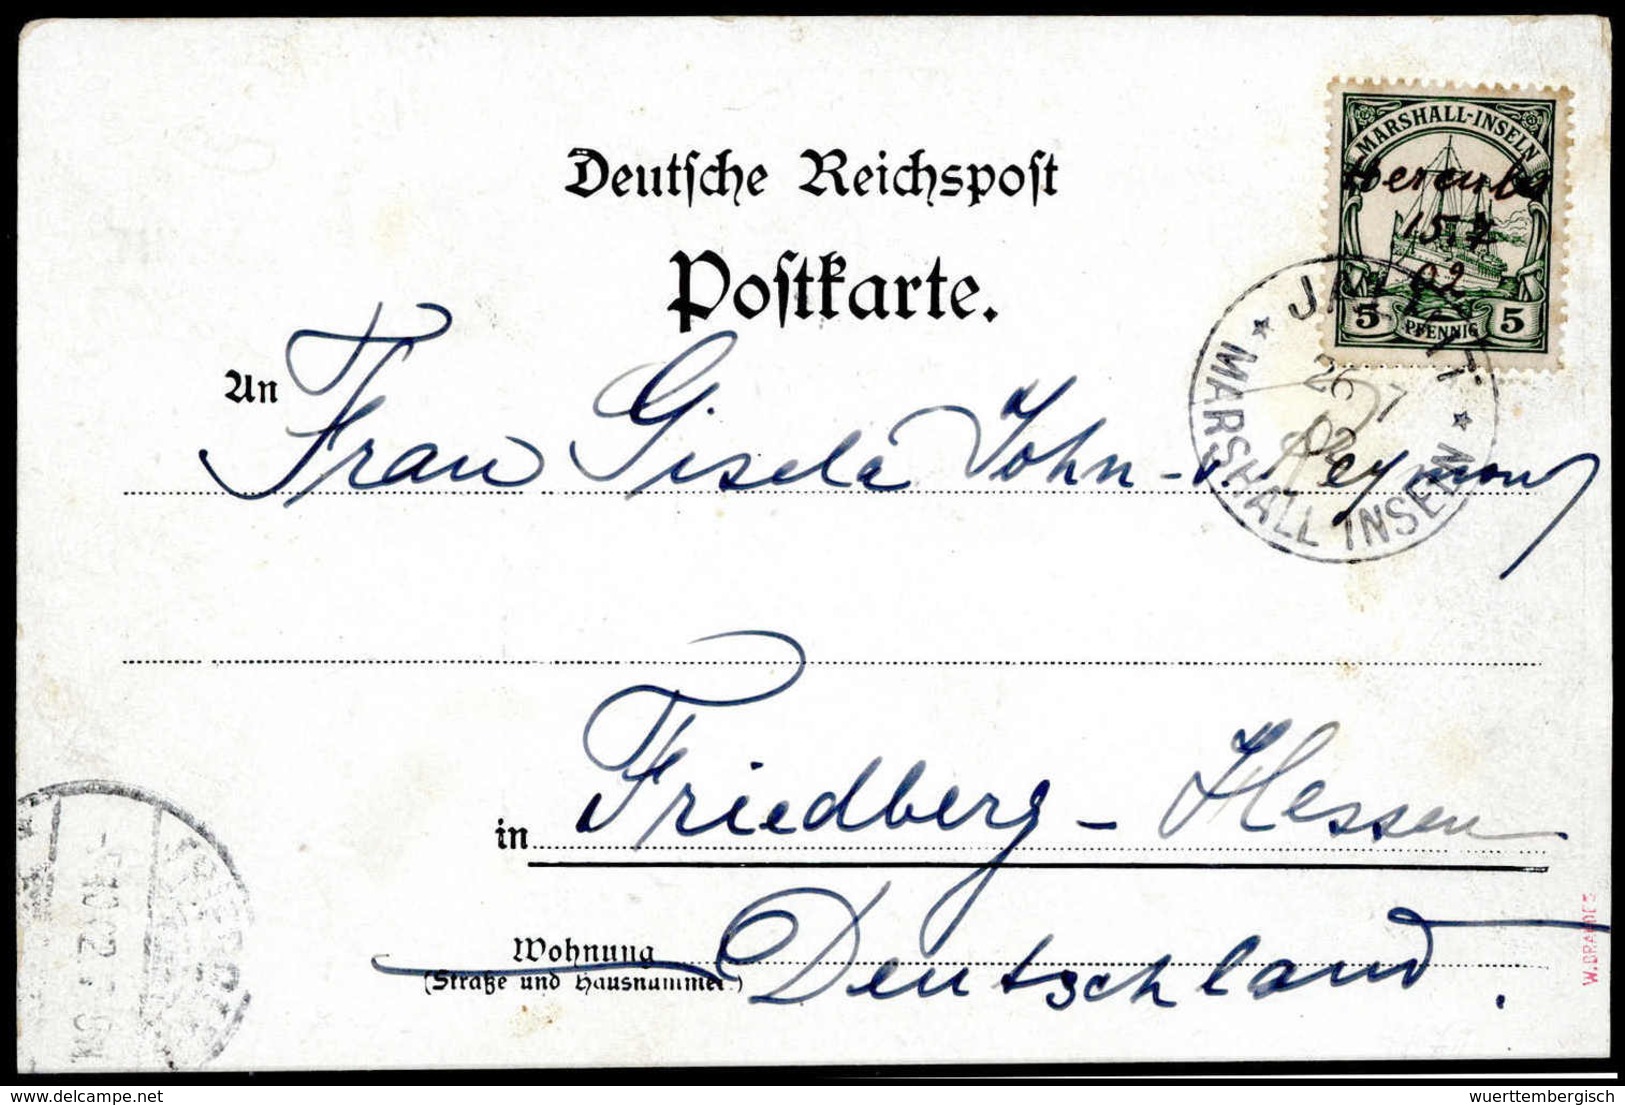 Deutsche Reichspost
Postkarte.
MARSHALL-INSELN
15.7
02
5 PFENNIG 5
JALUIT
26 7
02
* MARSHALL INSELN *
An Frau Gisela John-v. Reymond
in Friedberg - Hessen
Wohnung
(Straße und Hausnummer)
Deutschland.
W.BRANDES
delcampe.net
wuerttembergisch